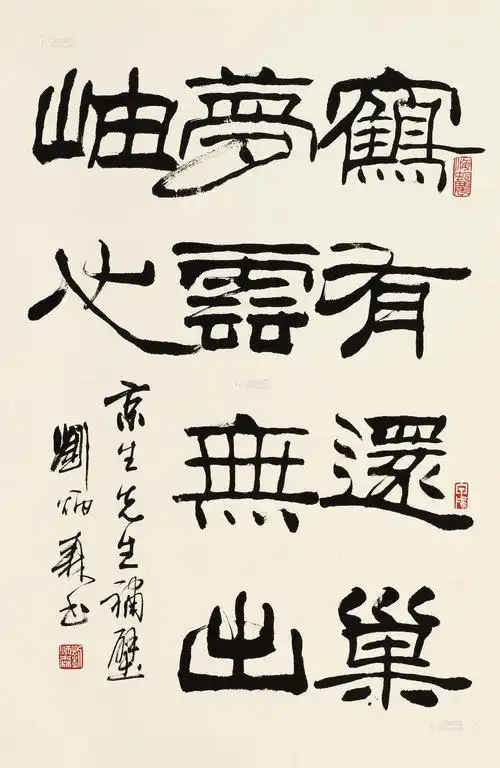 鶴有還巢
夢雲無出
岫心
京生先生補壁
劉炳森书